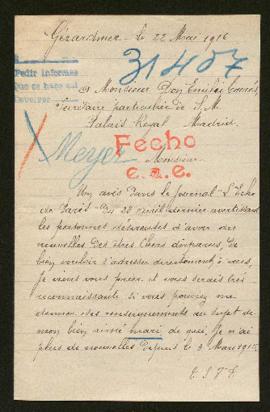 Gérardmer - le 22 Mai 1916
31407
Pedir informes
Que se hace aqui
Devolver
A Monsieur Don Emilio
Secrétaire particulier de S.M.
Palais Royal Madrid
Fecho
E.a.e.
Meyer
Monsieur
Un avis dans le journal L'Echo
de Paris du 28 avril dernier avertissant
les personnes désireuses d'avoir des
nouvelles des êtres chers disparus, de
bien vouloir s'adresser directement à vous,
Je viens vous prier et vous serais très
reconnaissante si vous pouviez me
donner des renseignements au sujet de
mon bien aimé mari de qui Je n'ai
plus de nouvelles Depuis le 3 Mars 1915
T.S.V.P.